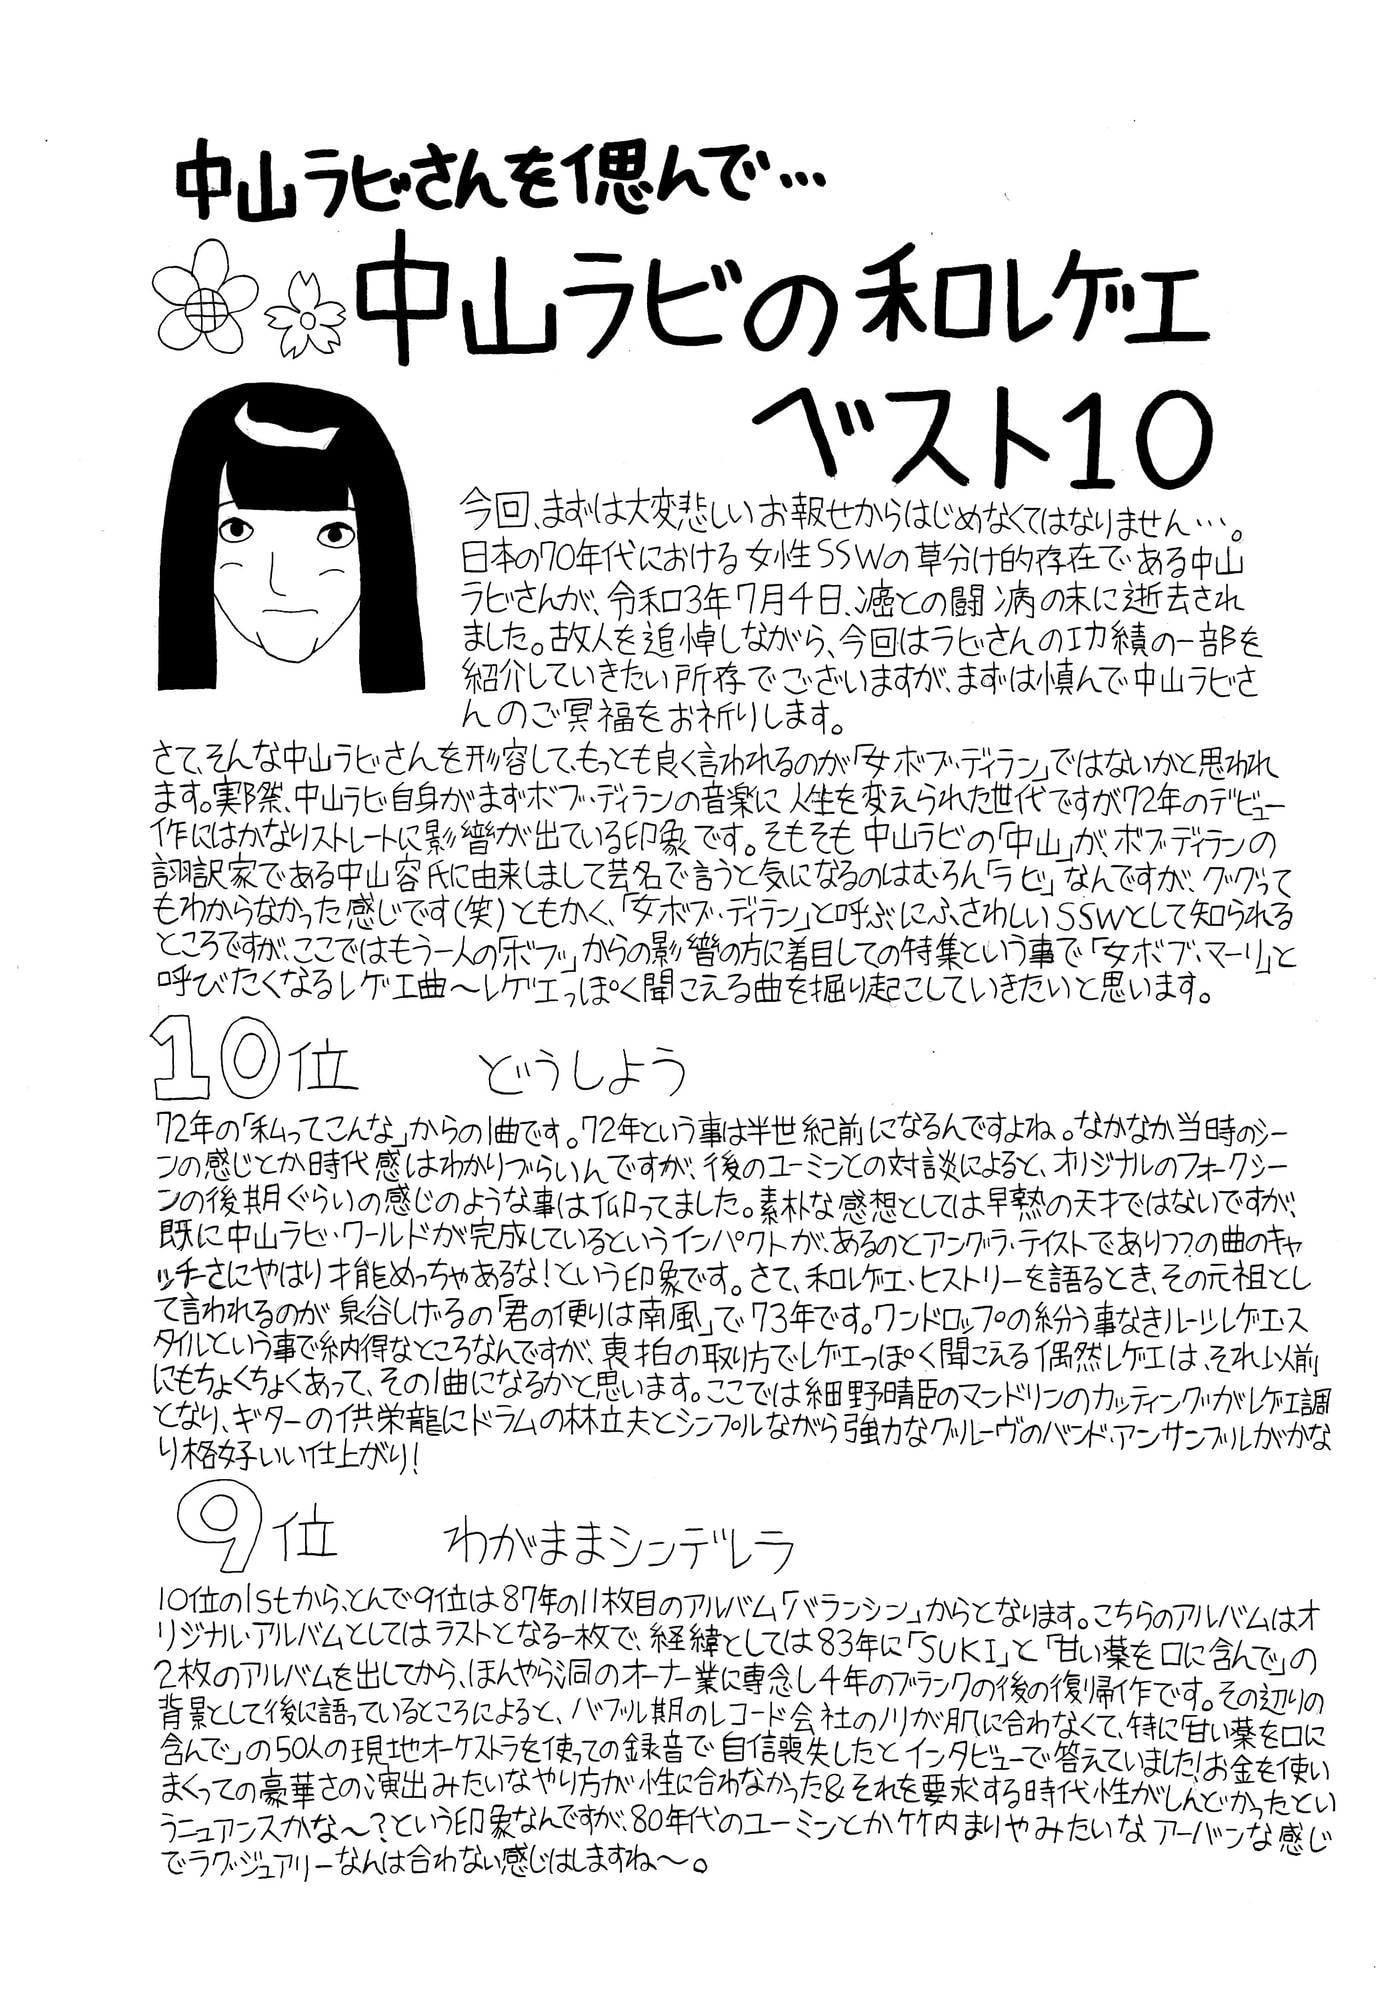 中山ラビさんを偲んで…
中山ラビの和レゲエ
ベスト10
今回、まずは大変悲しいお報せからはじめなくてはなりません…。
日本の70年代における女性SSWの草分け的存在である中山
ラビさんが、令和3年7月4日、癌との闘病の末に逝去され
ました。故人を追悼しながら、今回はラビさんの功績の一部を
紹介していきたい所存でございますが、まずは慎んで中山ラビさ
んのご冥福をお祈りします。
さて、そんな中山ラビさんを形容して、もっとも良く言われるのが「女ボブ・ディラン」ではないかと思われ
ます。実際、中山ラビ自身がまずボブ・ディランの音楽に人生を変えられた世代ですが72年のデビュー
作にはかなりストレートに影響が出ている印象です。そもそも中山ラビの「中山」が、ボブ・ディランの
翻訳家である中山容氏に由来しまして芸名で言うと気になるのはむろん「ラビ」なんですが、グググって
もわからなかった感じです(笑)ともかく、「女ボブ・ディラン」と呼ぶにふさわしいSSWとして知られる
ところですが、ここではもう一人の「ボブ」からの影響の方に着目しての特集という事で「女ボブ・マーリ」と
呼びたくなるレゲエ曲〜レゲエっぽく聞こえる曲を掘り起こしていきたいと思います。
10位 どうしよう
72年の「私ってこんな」からの1曲です。72年という事は半世紀前になるんですよね。なかなか当時のシー
ンの感じとか時代感はわかりづらいんですが、後のユーミンとの対談によると、オリジナルのフォークシー
ンの後期ぐらいの感じのような事は仰ってました。素朴な感想としては早熟の天才ではないですが、
既に中山ラビ・ワールドが完成しているというインパクトが、あるのとアングラ・テイストでありつつの曲のキャ
ッチーさにやはり才能めっちゃあるな!という印象です。さて、和レゲエ・ヒストリーを語るとき、その元祖とし
て言われるのが泉谷しげるの「君の便りは南風」で73年です。ワンドロップの紛う事なきルーツレゲエ・ス
タイルという事で納得なところなんですが、裏拍の取り方でレゲエっぽく聞こえる偶然レゲエは、それ以前
にもちょくちょくあって、その1曲になるかと思います。ここでは細野晴臣のマンドリンのカッティングがレゲエ調
となり、ギターの洪栄龍にドラムの林立夫とシンプルながら強力なグルーヴのバンド・アンサンブルがかな
り格好いい仕上がり!
9位 わがままシンデレラ
10位の1stから、とんで9位は87年の11枚目のアルバム「バランシン」からとなります。こちらのアルバムはオ
リジナル・アルバムとしてはラストとなる一枚で、経緯としては83年に「SUKI」と「甘い薬を口に含んで」の
2枚のアルバムを出してから、ほんやら洞のオーナー業に専念し4年のブランクの後の復帰作です。その辺りの
背景として後に語っているところによると、バブル期のレコード会社のノリが肌に合わなくて、特に「甘い薬を口に
含んで」の50人の現地オーケストラを使っての録音で自信喪失したとインタビューで答えていました!お金を使い
まくっての豪華さの演出みたいなやり方が性に合わなかった&それを要求する時代性がしんどかったとい
うニュアンスかな〜?という印象なんですが、80年代のユーミンとか竹内まりやみたいなアーバンな感じ
でラグジュアリーなんは合わない感じはしますね〜。